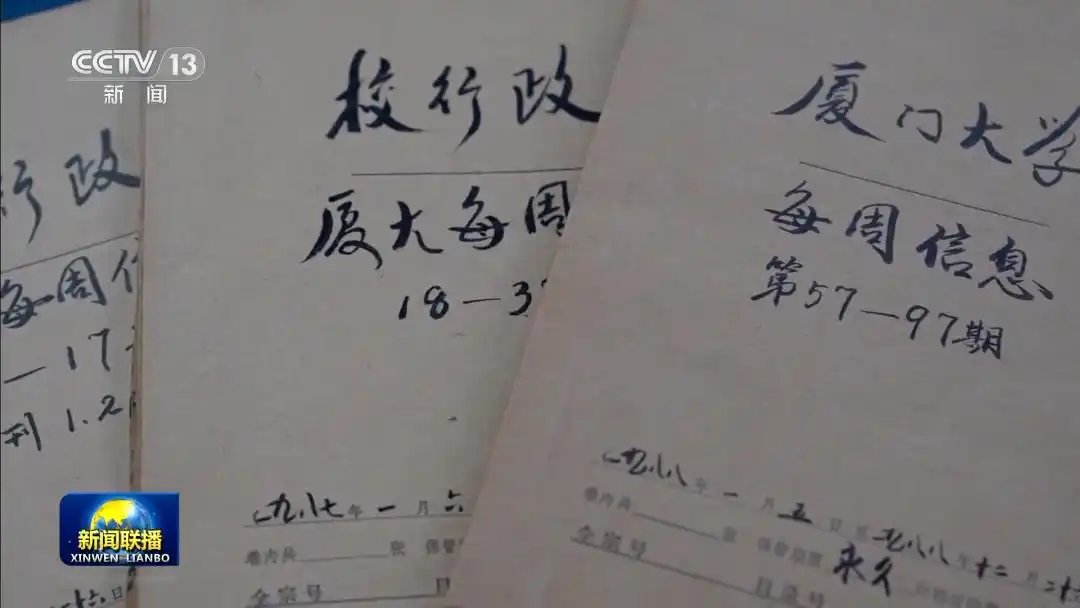 CCTV 13
新闻
行政
每周
—17
刊1.2
十六日
校行政
厦大每周
18—3
一九八七年一月六
卷内共 张 保管
全宗号 目
厦门大学
每周信息
第57—97期
一九八八年一月五日至一九八八年十二月二十
卷内共 张 保管期限 永久
全宗号 目录号
新闻联播
XINWEN-LIANBO